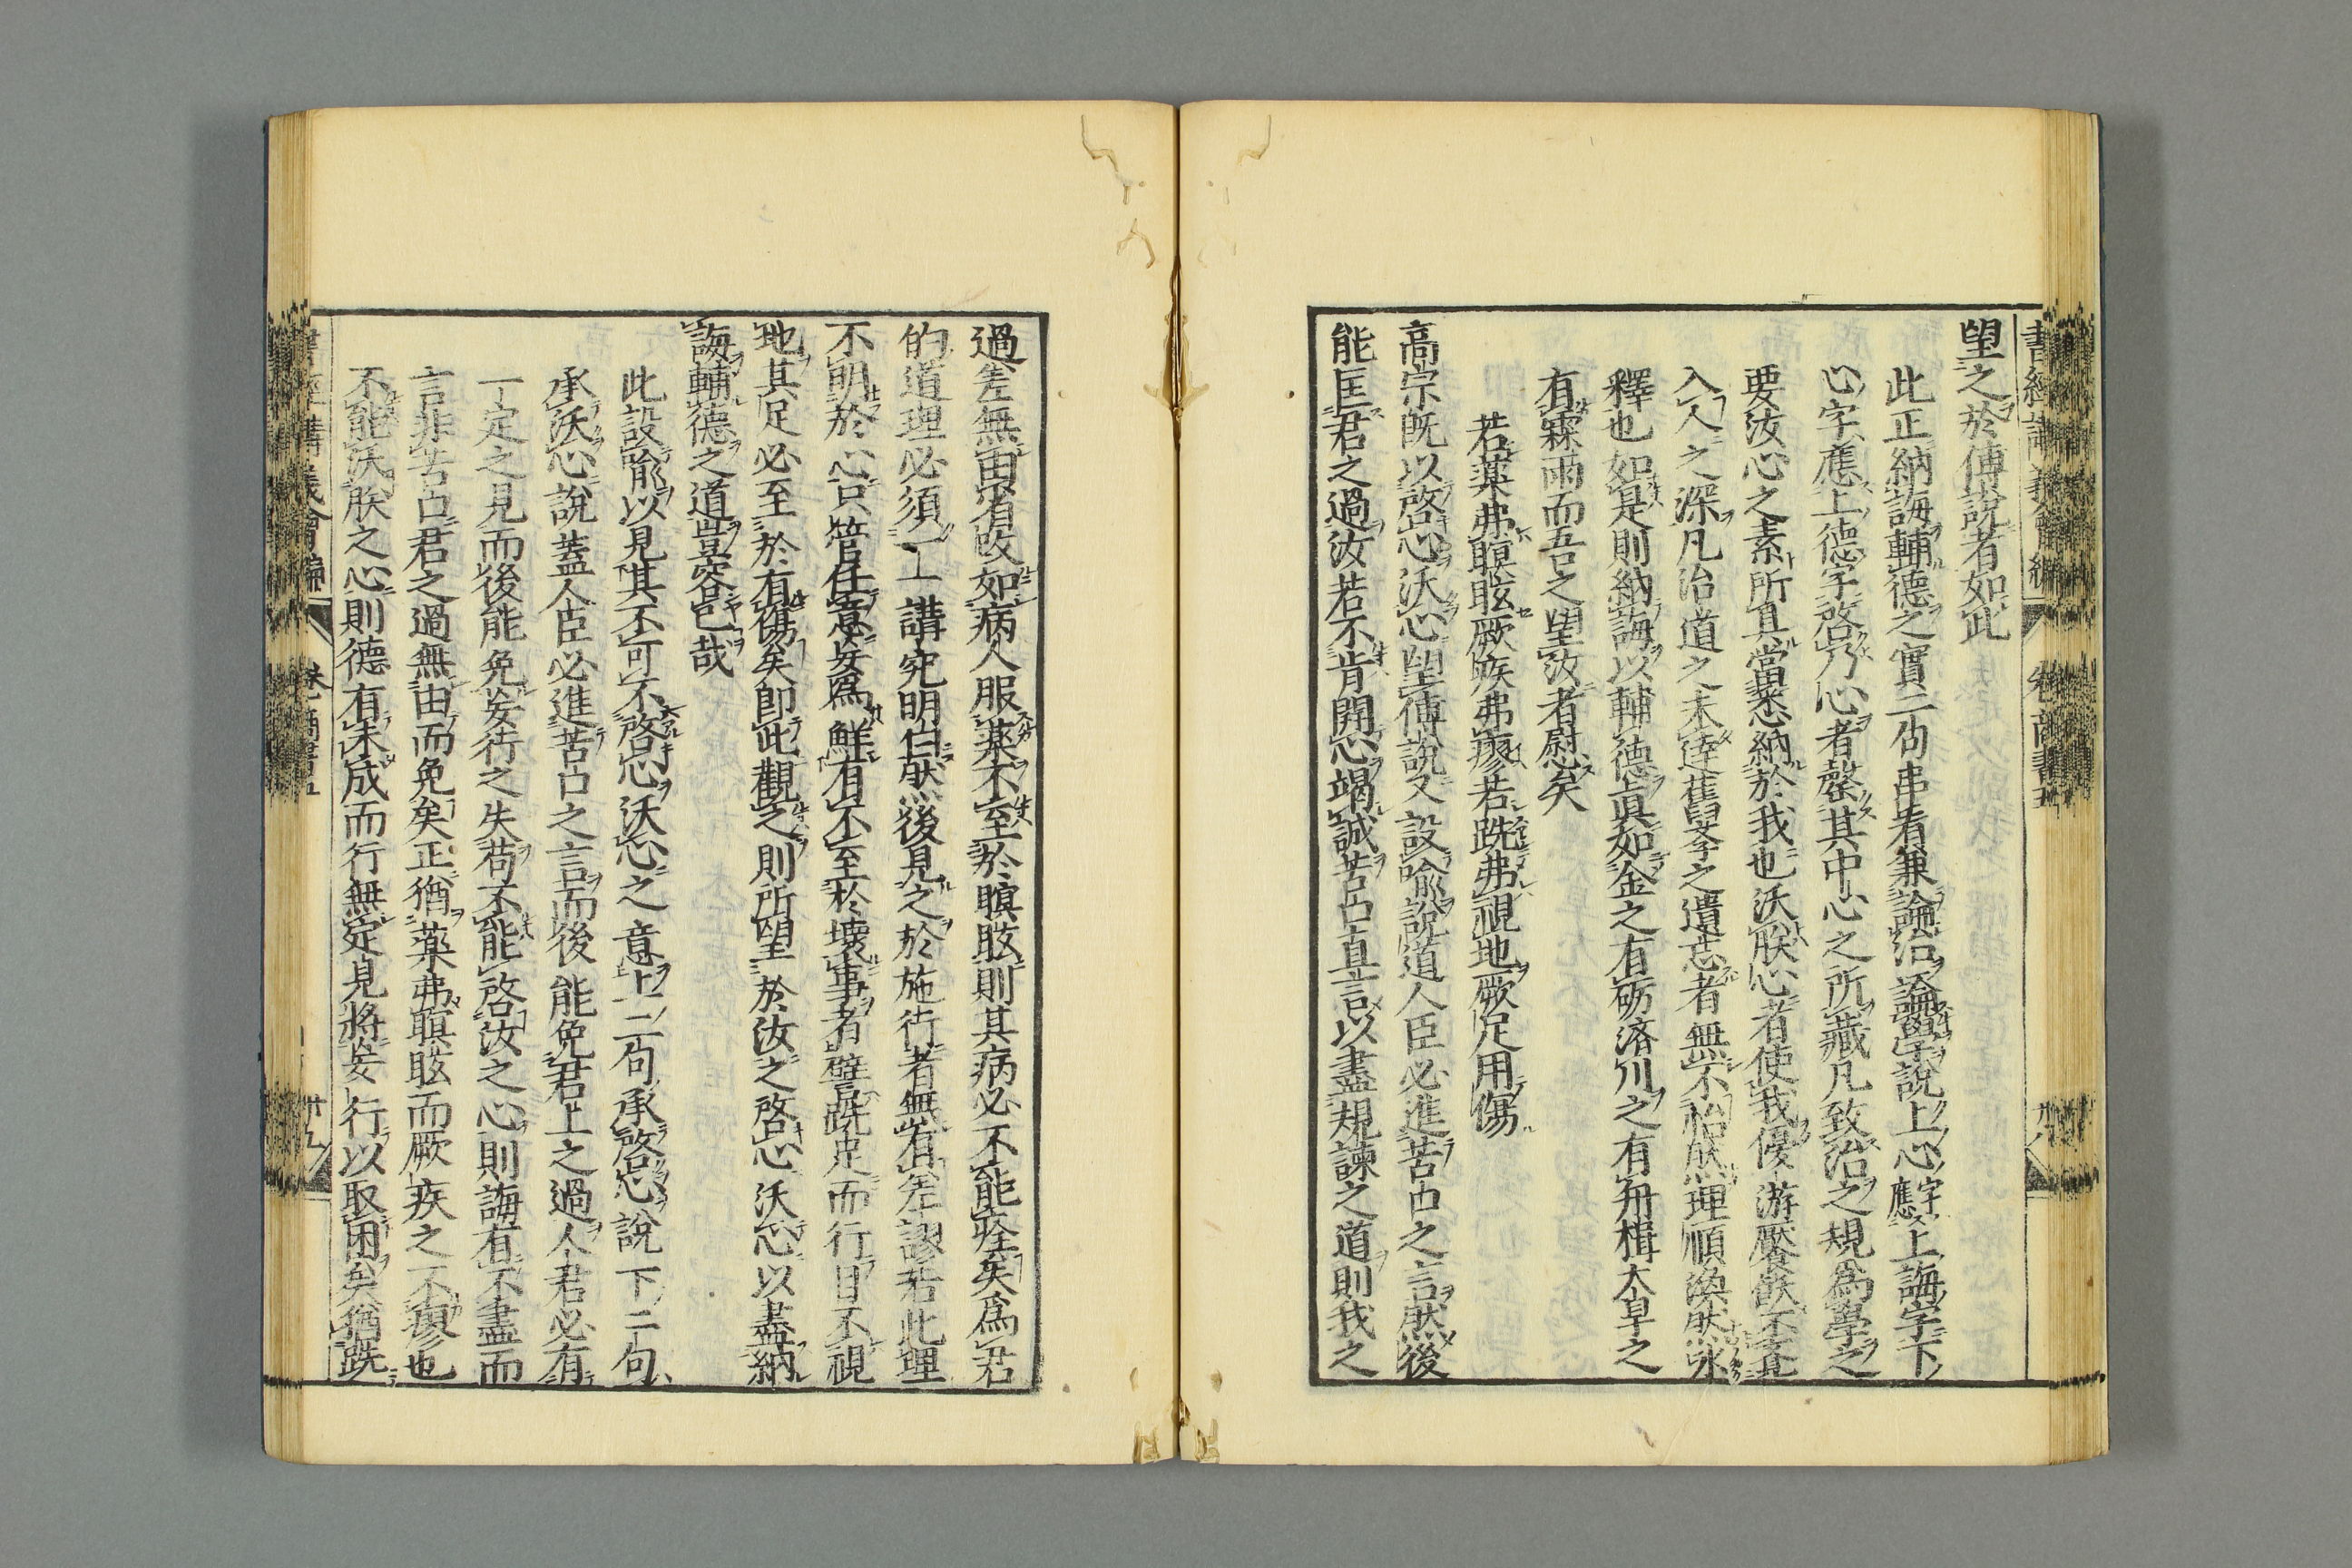 望之於傅說者如此
此正納誨輔德之實二句串看兼論治論學說上心字應上誨字下
心字應上德字啓乃心者罄其中心之所藏凡致治之規為學之
要汝心之素所具當悉納於我也沃朕心者使我優游饜飫不覺
入人之深凡治道之未達舊學之遺忘者無不怡然理順渙然冰
釋也如是則納誨以輔德眞如金之有砺済川之有舟楫大旱之
有霖雨而吾之望汝者慰矣
若藥弗瞑眩厥疾弗瘳若跣弗視地厥足用傷
高宗既以啓心沃心望傅說又設喻說道人臣必進苦口之言然後
能匡君之過汝若不肯開心竭誠苦口直言以盡規諫之道則我之
過差無由省改如病人服藥不至於瞑眩則其病必不能痊矣爲君
的道理必須一一講究明白然後見之於施行者無有差謬若此理
不明於心只管任意妄爲鮮有不至於壞事者譬跣足而行目不視
地其足必至於有傷矣即此觀之則所望於汝之啓心沃心以盡納
誨輔德之道豈容已哉
此設喻以見其不可不啓心沃心之意上二句承啓心說下二句
承沃心說蓋人臣必進苦口之言而後能免君上之過人君必有
丁定之見而後能免妄行之失苟不能啓汝之心則誨有不盡而
言非苦口君之過無由而免矣正猶藥弗瞑眩而厥疾之不瘳也
不能沃朕之心則德有未成而行無定見將妄行以取困矣猶跣